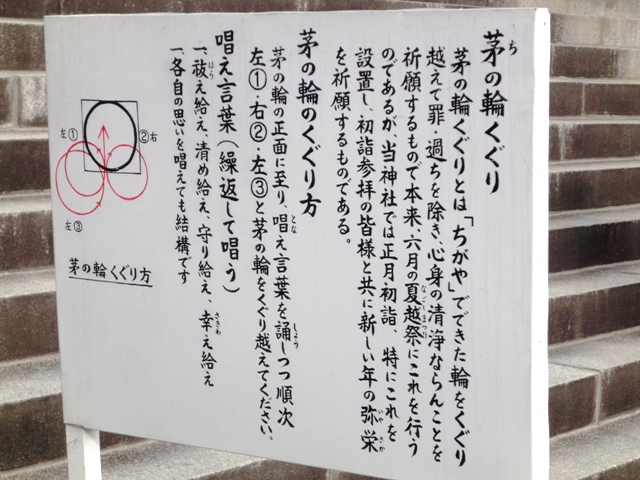 茅の輪くぐり
茅の輪くぐりとは「ちがや」でできた輪をくぐり
越えて罪・過ちを除き、心身の清浄ならんことを
祈願するもので本来、六月の夏越祭にこれを行う
のであるが、当神社では正月初詣、特にこれを
設置し、初詣参拝の皆様と共に新しい年の弥栄
を祈願するものである。
茅の輪のくぐり方
茅の輪の正面に至り、唱え言葉を誦しつつ順次
左①・右②・左③と茅の輪をくぐり越えてください。
唱え言葉(繰返して唱う)
一、祓え給え、清め給え、守り給え、幸え給え
一、各自の思いを唱えても結構です
左①
②右
左③
茅の輪くぐり方